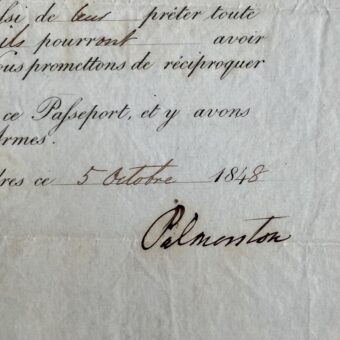 si de leur prêter toute
ils pourront avoir
ous promettons de réciproquer
ce Passeport, et y avons
Armes.
res ce 5 Octobre 1848
Palmerston